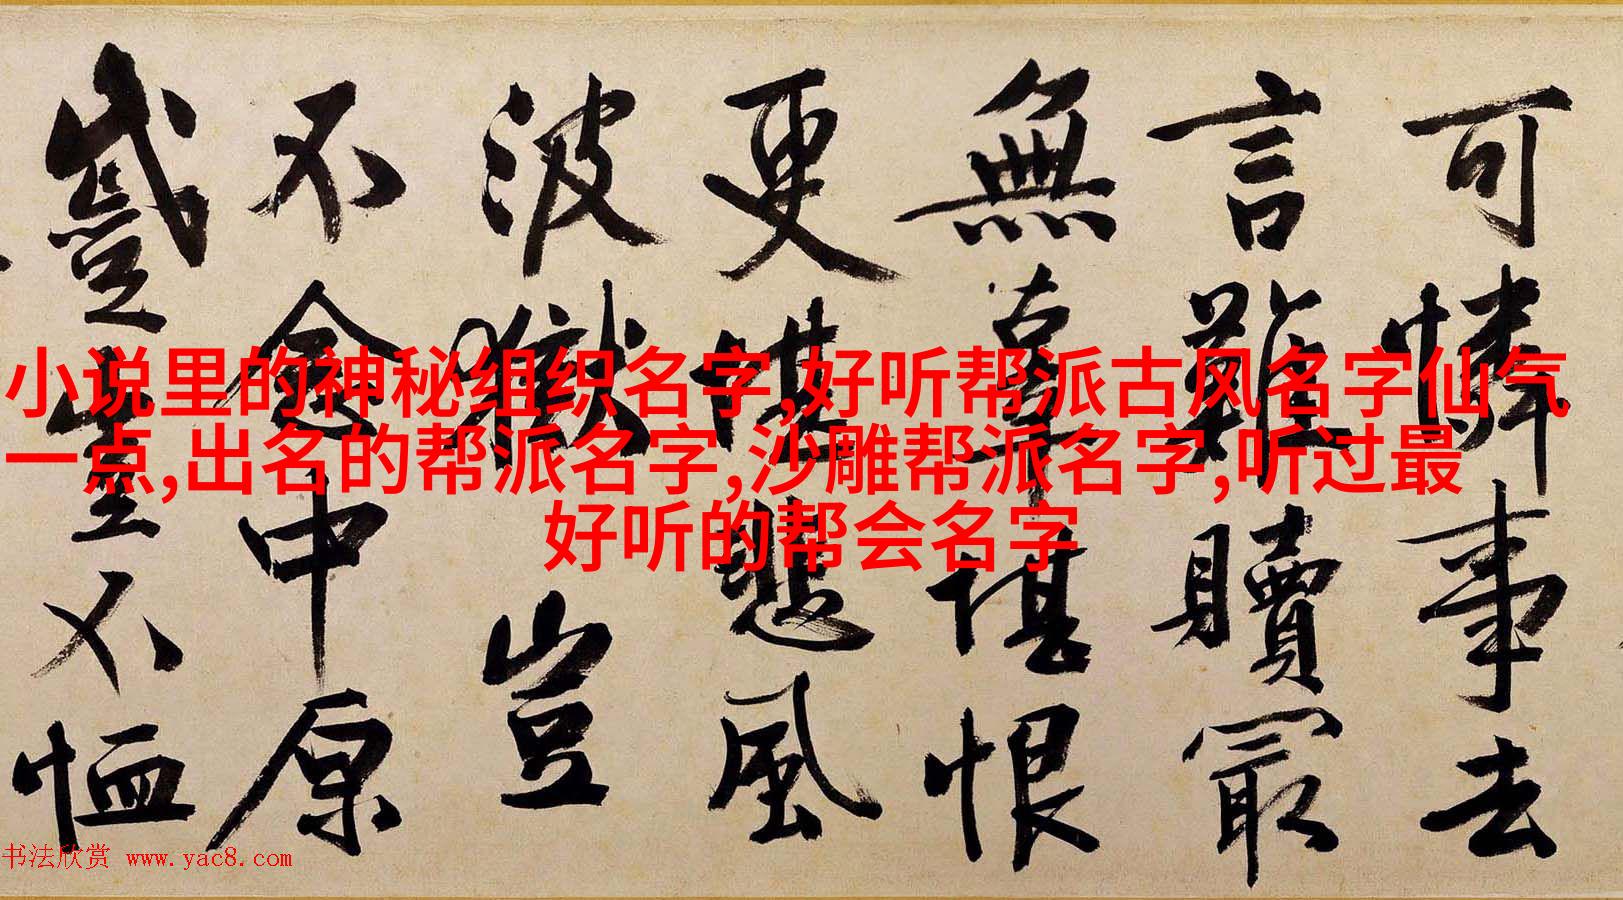 可憐事去
言難贖冣
無辜堪恨
更堪悲風
波獄豈
不念中原
蹙豈不恤
小说里的神秘组织名字,好听帮派古风名字仙气
一点,出名的帮派名字,沙雕帮派名字,听过最
好听的帮会名字
书法欣赏 www.yac8.com